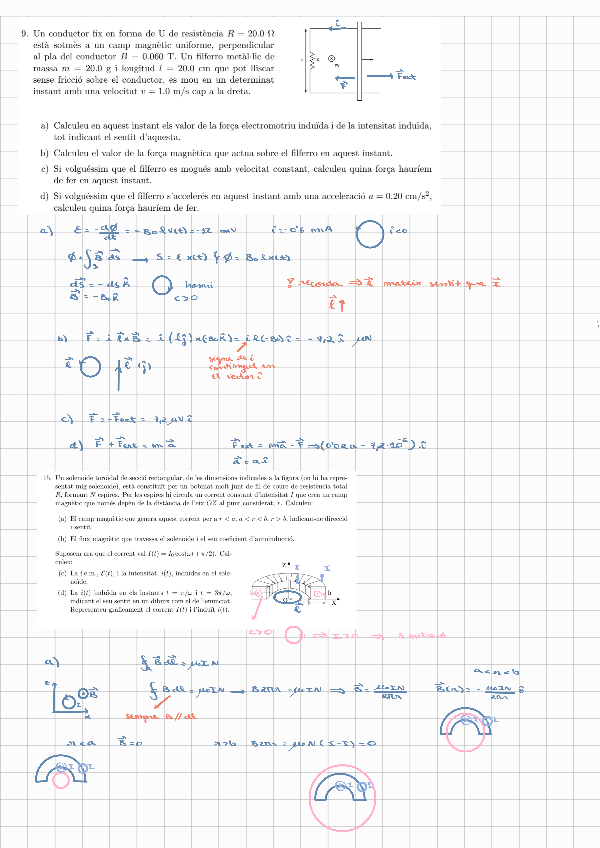 9. Un conductor fix en forma de U de resistència R = 20.0 Ω
està sotmès a un camp magnètic uniforme, perpendicular
al pla del conductor B = 0.060 T. Un filferro metàl·lic de
massa m = 20.0 g i longitud l = 20.0 cm que pot lliscar
sense fricció sobre el conductor, es mou en un determinat
instant amb una velocitat v = 1.0 m/s cap a la dreta.
i
F⃗ext
F⃗
a) Calculeu en aquest instant els valor de la força electromotriu induïda i de la intensitat induïda,
tot indicant el sentit d'aquesta.
b) Calculeu el valor de la força magnètica que actua sobre el filferro en aquest instant.
c) Si volguéssim que el filferro es mogués amb velocitat constant, calculeu quina força hauríem
de fer en aquest instant.
d) Si volguéssim que el filferro s'accelerés en aquest instant amb una acceleració a = 0.20 cm/s²,
calculeu quina força hauríem de fer.
a) ε = -dΦ/dt = -B₀ℓv(t) = -12 mV i = -0'6 mA i<0
Φ = ∫s B⃗·ds⃗ → S = ℓ x(t) Φ = B₀ℓx(t)
ds⃗ = -ds k̂ horari
B⃗ = -B₀ k̂ C>0
! recorda ⇒ ℓ⃗ mateix sentit que I⃗
ℓ⃗ ↑
b) F⃗ = i ℓ⃗ × B⃗ = i (ℓĵ) × (-B₀k̂) = i ℓ(-B₀) î = -7,2 î μN
ℓ⃗ (ĵ)
signe de i
contingut en
el vector î
c) F⃗ = -F⃗ext = 7,2 μN î
d) F⃗ + F⃗ext = m·a⃗ F⃗ext = ma⃗ - F⃗ ⇒ (0'02a - 7,2·10⁻⁶) î
a⃗ = a î
15. Un solenoide toroïdal de secció rectangular, de les dimensions indicades a la figura (on hi ha repre-
sentat mig solenoide), està constituït per un bobinat molt junt de fil de coure de resistència total
R, formant N espires. Per les espires hi circula un corrent constant d'intensitat I que crea un camp
magnètic que només depèn de la distància de l'eix OZ al punt considerat, r. Calculeu:
(a) El camp magnètic que genera aquest corrent per a r < a, a < r < b, r > b, indicant-ne direcció
i sentit.
(b) El flux magnètic que travessa el solenoide i el seu coeficient d'autoinducció.
Suposem ara que el corrent val I(t) = I₀ cos(ωt + π/2). Cal-
culeu:
(c) La f.e.m., ℰ(t), i la intensitat, i(t), induïdes en el sole-
noide.
(d) La i(t) induïda en els instants t = π/ω i t = 3π/ω,
indicant el seu sentit en un dibuix com el de l'enunciat.
Representeu gràficament el corrent I(t) i l'induït i(t).
C>0 ⇒ I>0 ⇒
a) ∮ B⃗ dℓ⃗ = μ₀IN
∮ B dℓ = μ₀IN → B2πr = μ₀IN ⇒ B⃗ = μ₀IN/2πr
a<r<b
B⃗(r) = - μ₀IN/2πr
sempre B // dℓ
r<a B⃗ = 0 r>b B2πr = μ₀N(I-I) = 0